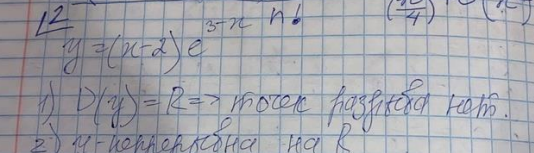 №2
n! (x/4) (x
y = (x-2) e^{3-x}
1) D(y) = R => точек разрыва нет.
2) y - непрерывна на R